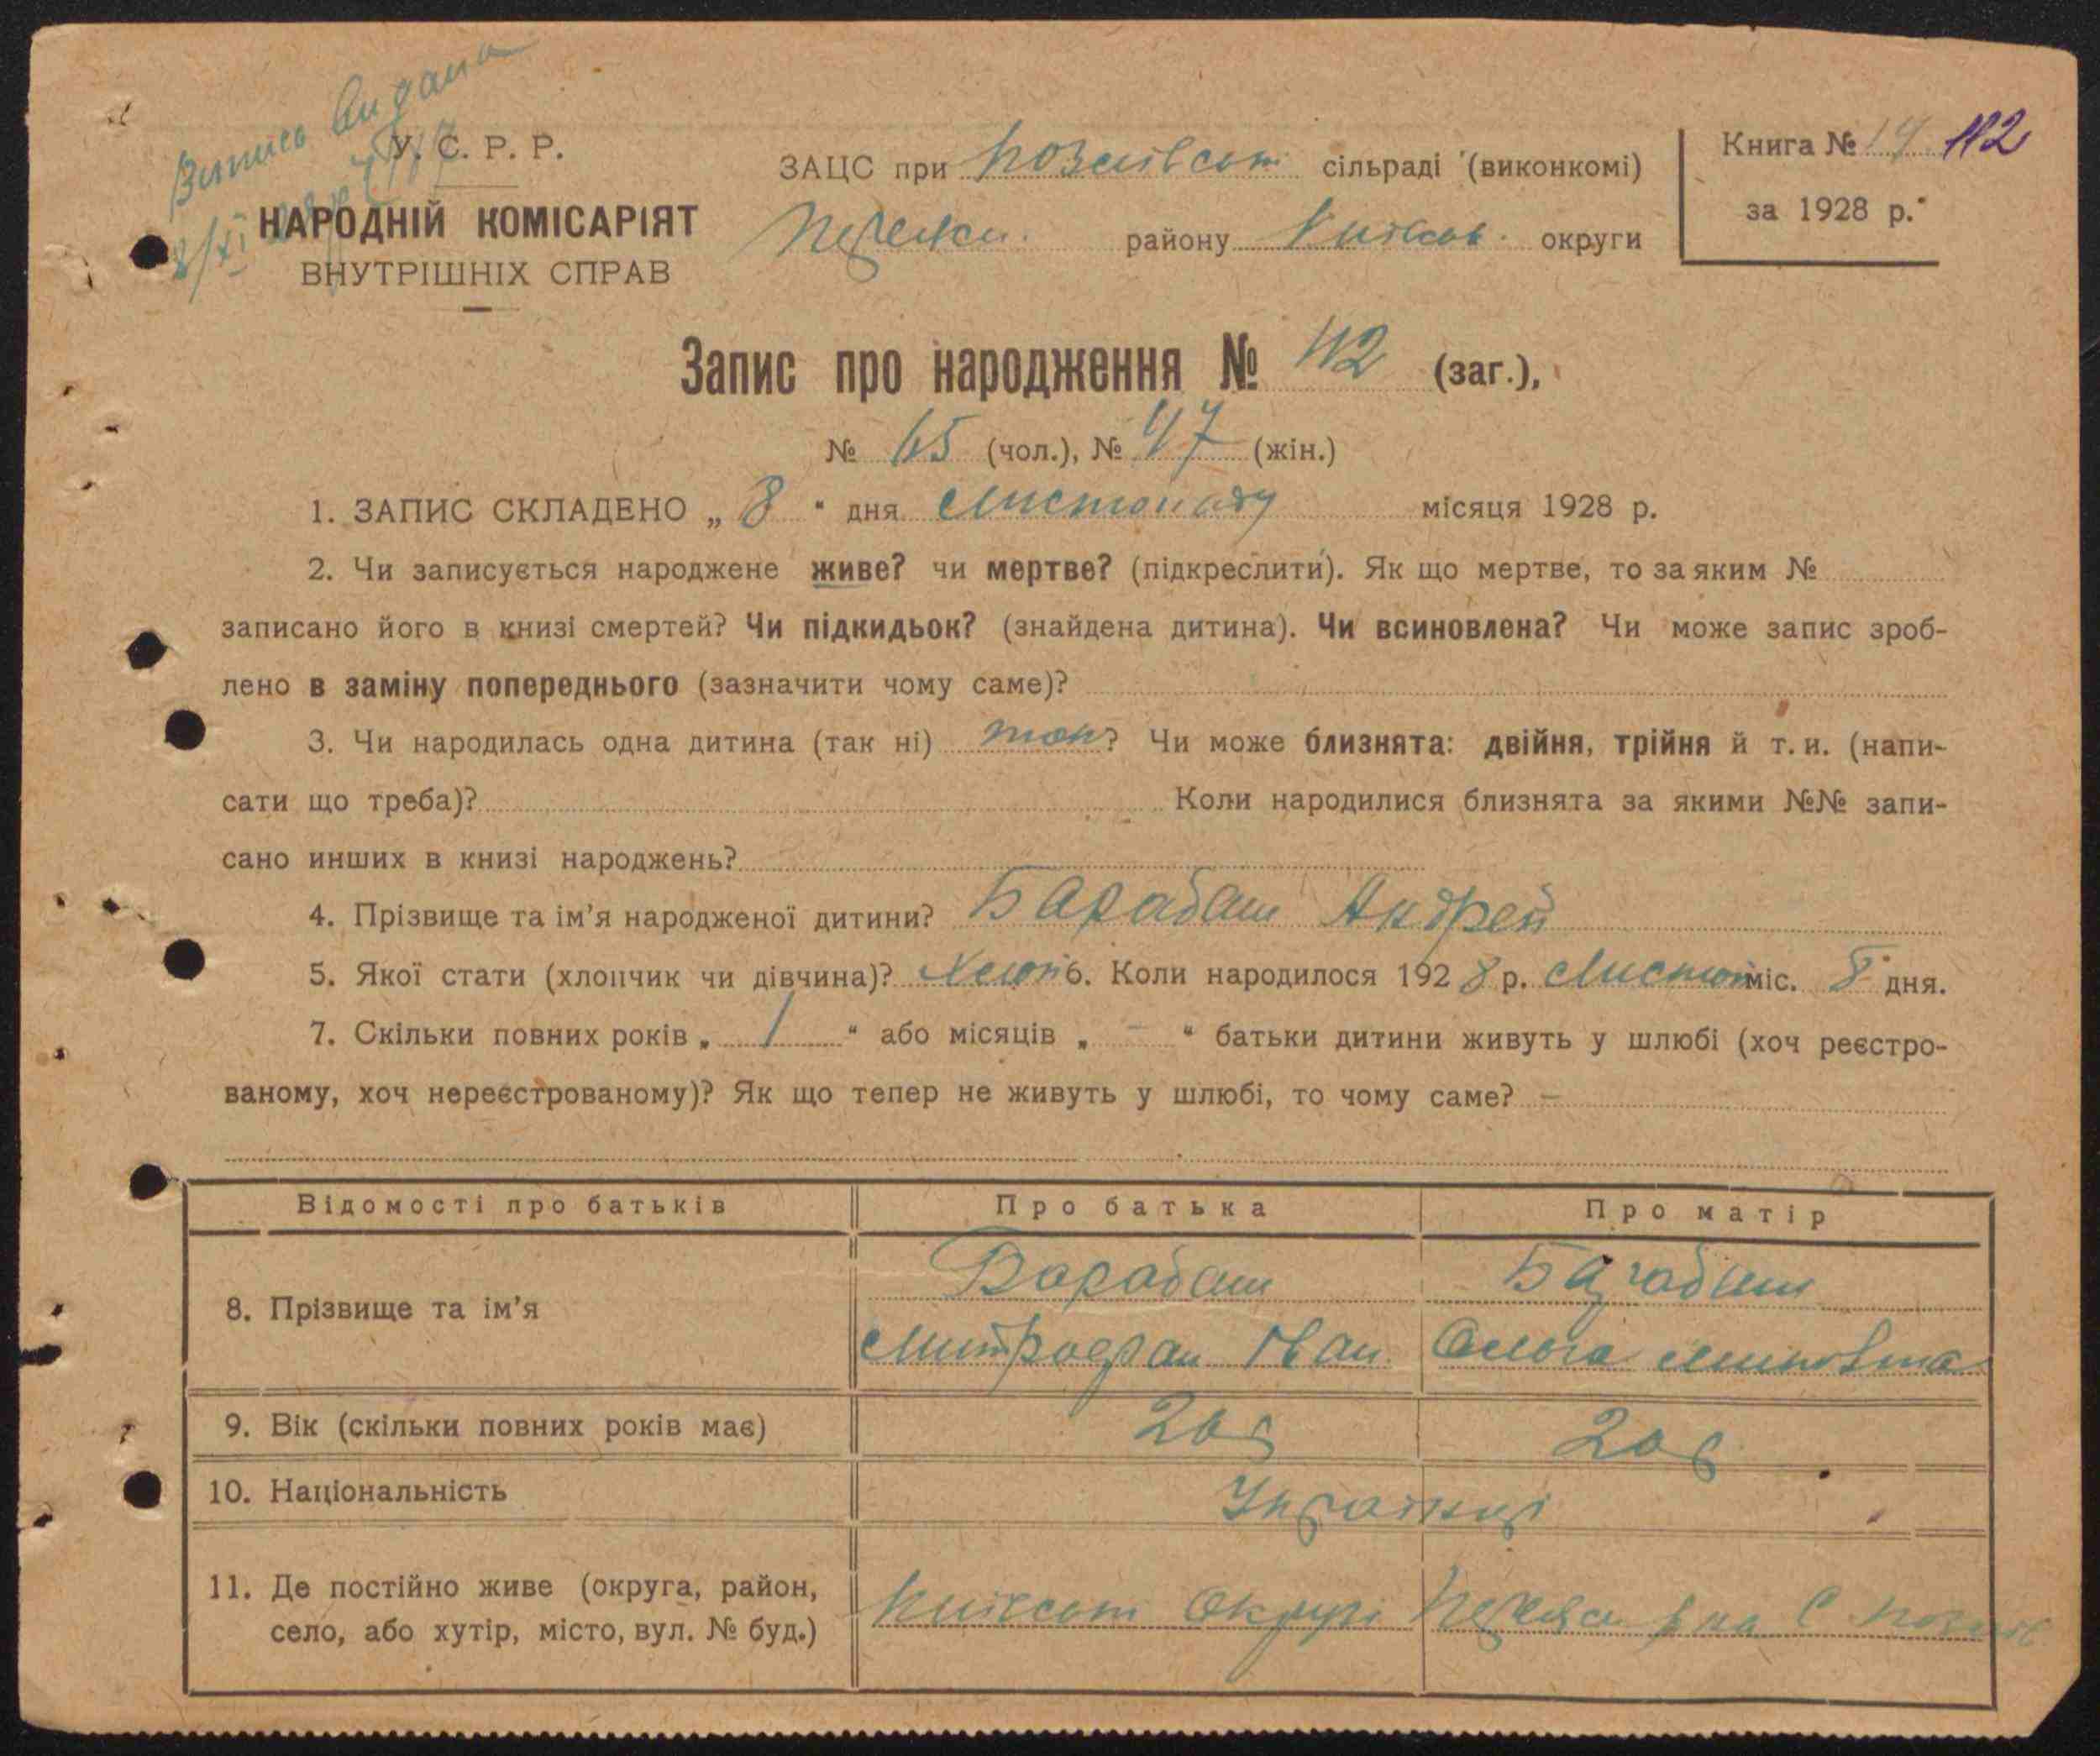 Випись видана
У. С. Р. Р.
НАРОДНІЙ КОМІСАРІЯТ
ВНУТРІШНІХ СПРАВ
ЗАЦС при сільраді (виконкомі)
району округи
Книга № 14 112
за 1928 р.
Запис про народження № 112 (заг.),
№ 65 (чол.), № 47 (жін.)
1. ЗАПИС СКЛАДЕНО „ 8 “ дня Листопаду місяця 1928 р.
2. Чи записується народжене живе? чи мертве? (підкреслити). Як що мертве, то за яким №
записано його в книзі смертей? Чи підкидьок? (знайдена дитина). Чи всиновлена? Чи може запис зроб-
лено в заміну попереднього (зазначити чому саме)?
3. Чи народилась одна дитина (так ні) так? Чи може близнята: двійня, трійня й т. и. (напи-
сати що треба)? Коли народилися близнята за якими №№ запи-
сано инших в книзі народжень?
4. Прізвище та ім’я народженої дитини? Барабаш Андрей
5. Якої стати (хлопчик чи дівчина)? Хлоп 6. Коли народилося 1928 р. Листоп міс. 8 дня.
7. Скільки повних років „ 1 “ або місяців „ – “ батьки дитини живуть у шлюбі (хоч реєстро-
ваному, хоч нереєстрованому)? Як що тепер не живуть у шлюбі, то чому саме? –
Відомості про батьків Про батька Про матір
8. Прізвище та ім’я Барабаш Барабаш
Митрофан Іван Ольга
9. Вік (скільки повних років має) 20 20
10. Національність Українці
11. Де постійно живе (округа, район,
село, або хутір, місто, вул. № буд.) Київськ Округи